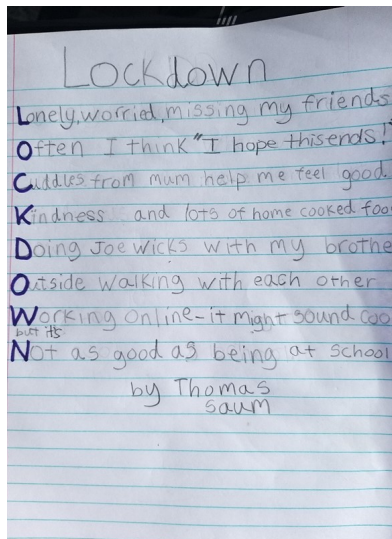 Lockdown
Lonely, worried, missing my friends
Often I think "I hope this ends."
Cuddles from mum help me feel good
Kindness and lots of home cooked foo
Doing Joe wicks with my brothe
Outside walking with each other
Working online-it might sound coo
but its
Not as good as being at school
by Thomas
saum